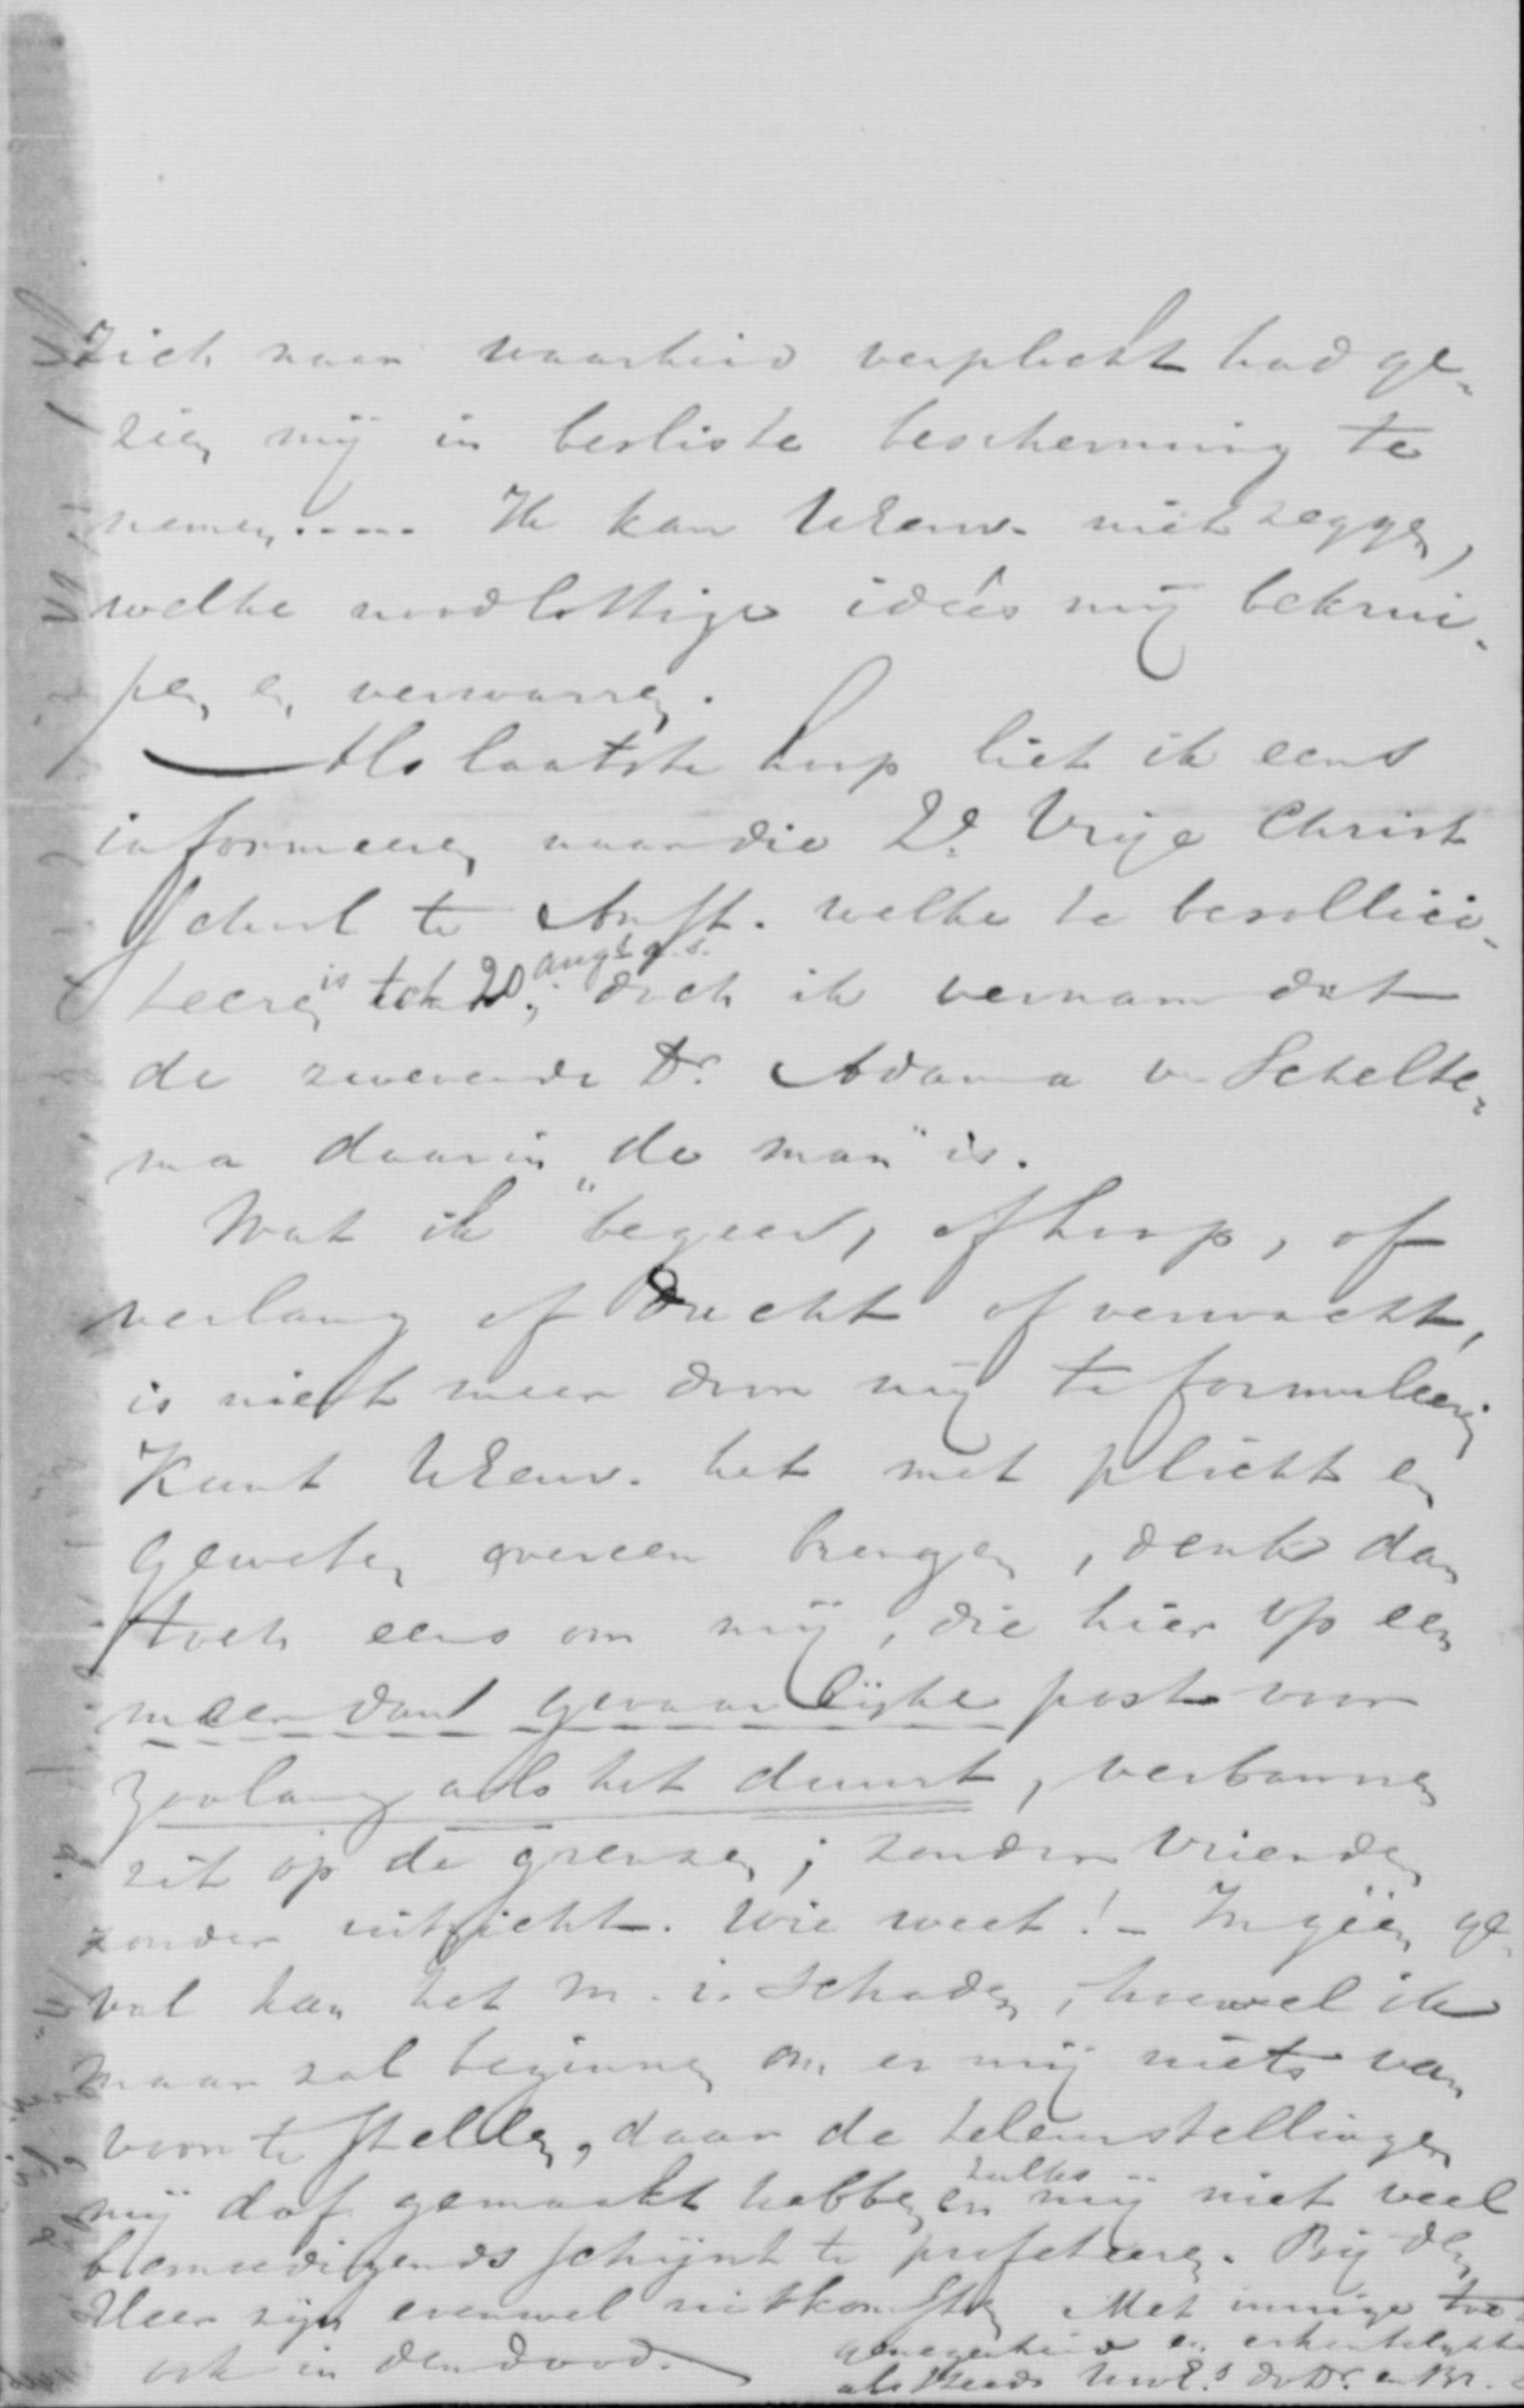 zich naar waarheid verplicht had ge-
zien mij in besliste bescherming te
nemen..... Ik kan UEerw. niet zeggen,
welke noodlottige ideés mij bekrui-
pen en verwarren.
Als laatste hoop liet ik eens
informeeren naar die 2e Vrije Christ
School te Amst. welke te besollici-
teeren is tot 20 Augs a.s.; doch ik vernam dat
de zwevende Dr. Adama v. Schelte-
ma daarin "de man" is.
Wat ik begeer, of hoop, of
verlang of ducht of verwacht,
is niet meer door mij te formuleeren
Kunt UEerw. het met plicht en
geweten overeen brengen, denk dan
toch eens om mij, die hier op een
meer dan gevaarlijke post voor
zoolang als het duurt, verbannen
zit op de grenzen; zonder vrienden
zonder uitzicht. Wie weet! - In geen ge-
val kan het m.i. schaden, hoewel ik
maar zal beginnen om er mij niets van
voor te stellen, daar de teleurstellingen
mij dof gemaakt hebben en zulks mij niet veel
bemoedigends schijnt te profeteeren. Bij den
Heer zijn evenwel uitkomsten Met innige toe
ook in den dood.
genegenheid en erkentelijkhe
als steeds UwE.s dw Dr. en Br.